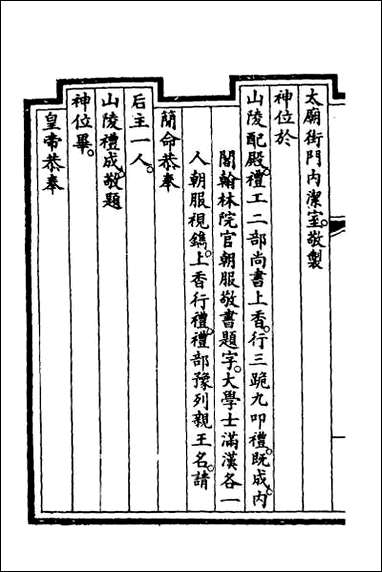 太廟街門内潔室。敬製
神位於
山陵配殿。禮工二部尚書上香。行三跪九叩禮。既成。内
閣翰林院官朝服敬書題字。大學士滿漢各一
人朝服視鐫。上香行禮。禮部豫列親王名。請
簡命恭奉
后主一人。
山陵禮成。敬題
神位畢。
皇帝恭奉